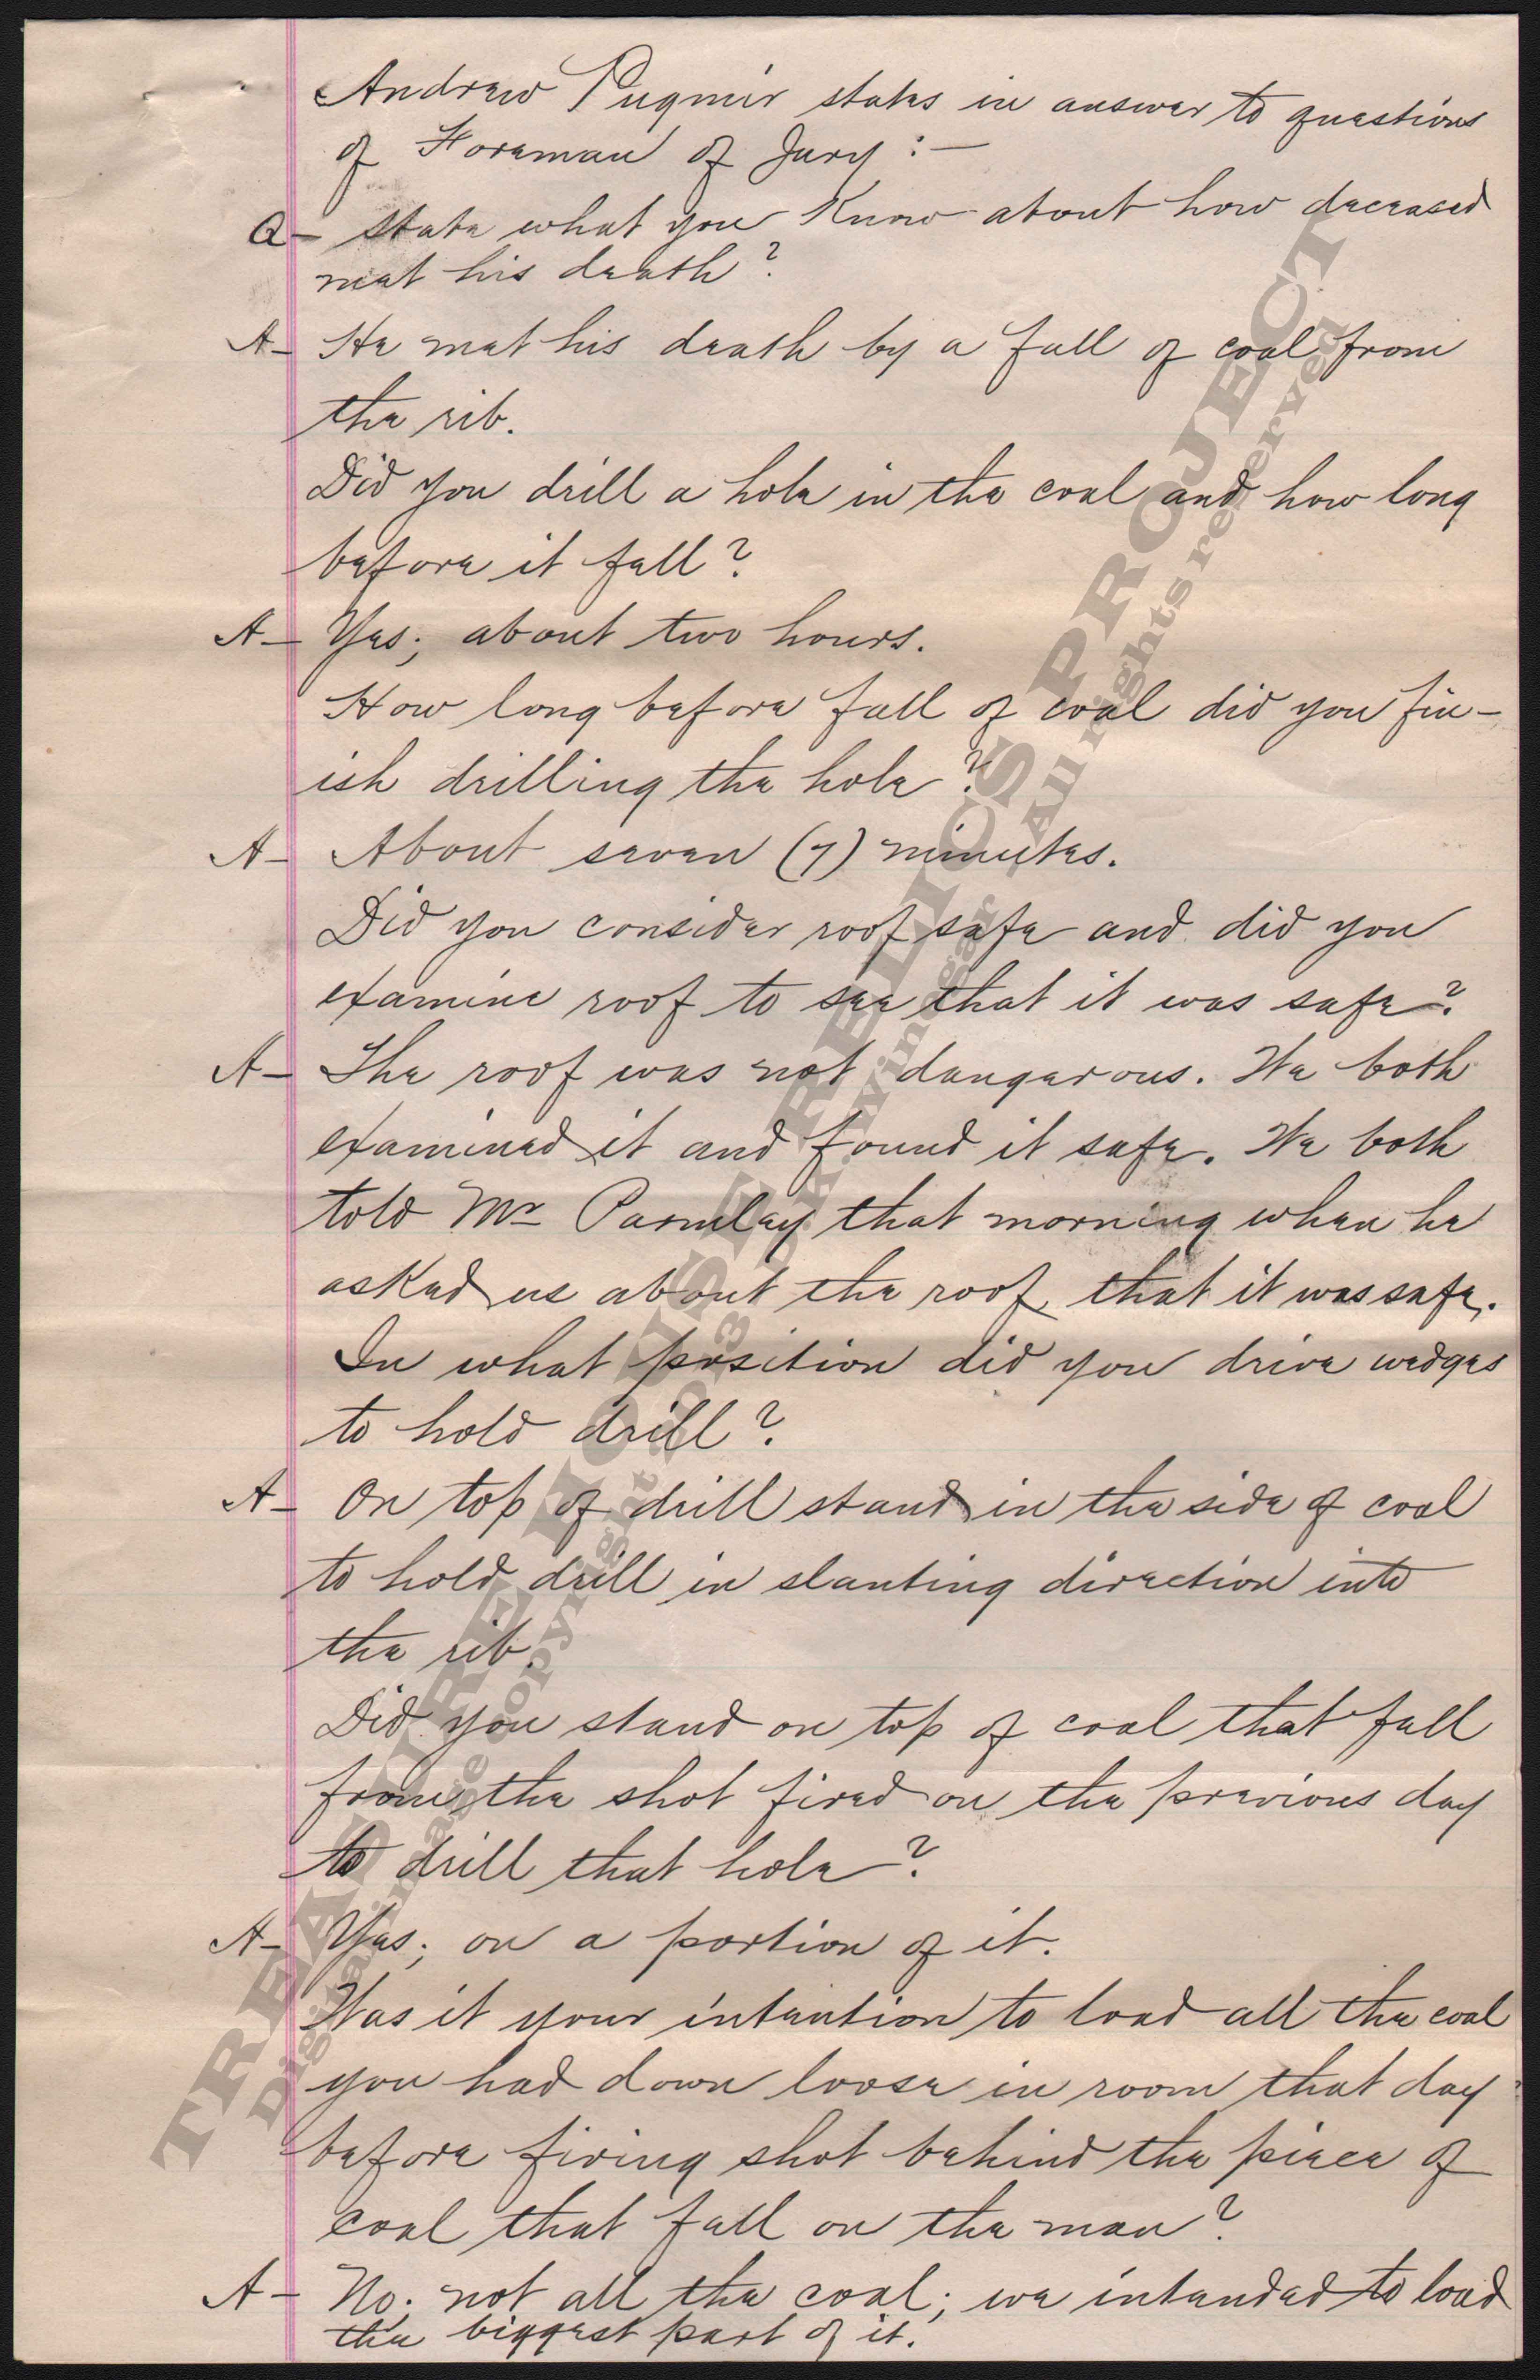 Andrew Pugmir states in answer to questions
of Foreman of Jury :—
Q— State what you know about how deceased
met his death?
A— He met his death by a fall of coal from
the rib.
Did you drill a hole in the coal and how long
before it fell?
A— Yes; about two hours.
How long before fall of coal did you fin-
ish drilling the hole?
A— About seven (7) minutes.
Did you consider roof safe and did you
examine roof to see that it was safe?
A— The roof was not dangerous. We both
examined it and found it safe. We both
told Mr Parmley that morning when he
asked us about the roof, that it was safe.
In what position did you drive wedges
to hold drill?
A— On top of drill stand in the side of coal
to hold drill in slanting direction into
the rib.
Did you stand on top of coal that fell
from the shot fired on the previous day
to drill that hole?
A— Yes; on a portion of it.
Was it your intention to load all the coal
you had down loose in room that day
before firing shot behind the piece of
coal that fell on the man?
A— No; not all the coal; we intended to load
the biggest part of it.
TREASURE HOUSE RELICS PROJECT
Digital image copyright 2013 D.R. Winegar All rights reserved